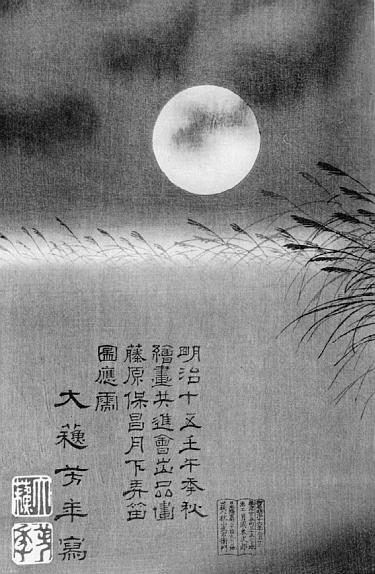 明治十五壬午季秋
繪畫共進會出品畫
藤原保昌月下弄笛
圖應需
大蘓芳年寫